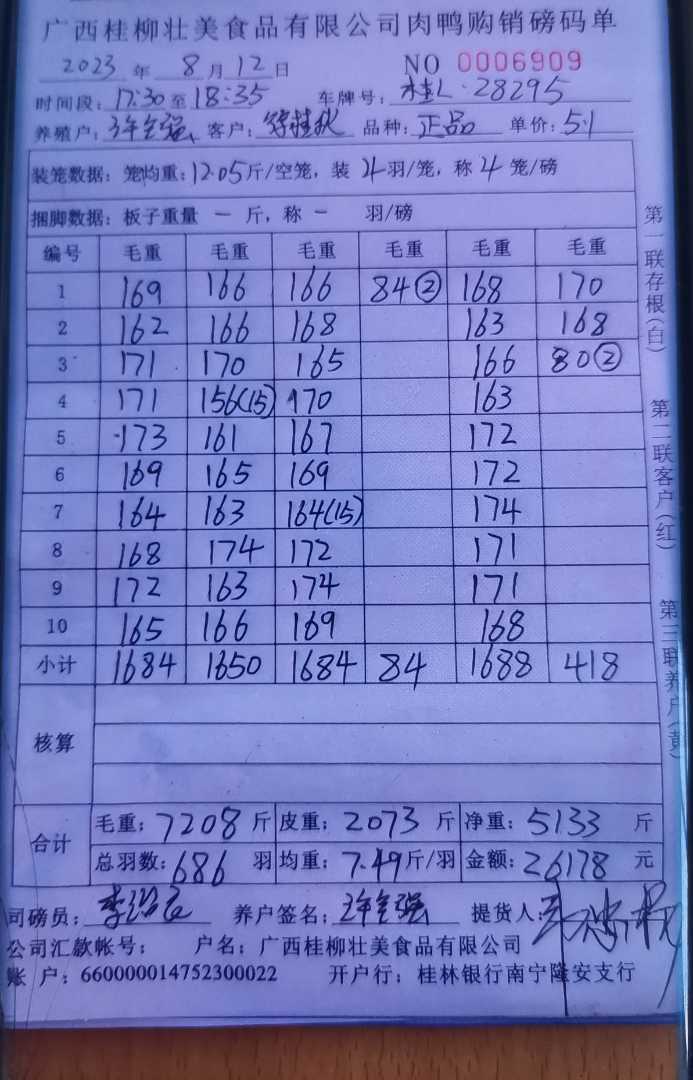 广西桂柳壮美食品有限公司肉鸭购销磅码单
2023 年 8 月 12 日 NO 0006909
时间段: 17:30 至 18:35 车牌号: 桂L·28295
养殖户: 客户: 品种: 正品 单价: 5.1
装笼数据: 笼均重: 12.05 斤/空笼, 装 4 羽/笼, 称 4 笼/磅
捆脚数据: 板子重量 一 斤, 称 一 羽/磅
编号 毛重 毛重 毛重 毛重 毛重 毛重
1 169 166 166 84② 168 170
2 162 166 168 163 168
3 171 170 165 166 80②
4 171 156(15) 170 163
5 173 161 167 172
6 169 165 169 172
7 164 163 164(15) 174
8 168 174 172 171
9 172 163 174 171
10 165 166 169 168
小计 1684 1650 1684 84 1688 418
核算
合计 毛重: 7208 斤 皮重: 2073 斤 净重: 5133 斤
总羽数: 686 羽 均重: 7.49 斤/羽 金额: 26178 元
司磅员: 养户签名: 提货人:
公司汇款帐号: 户名: 广西桂柳壮美食品有限公司
账 户: 660000014752300022 开户行: 桂林银行南宁隆安支行
第一联存根(白)
第二联客户(红)
第三联养户(黄)